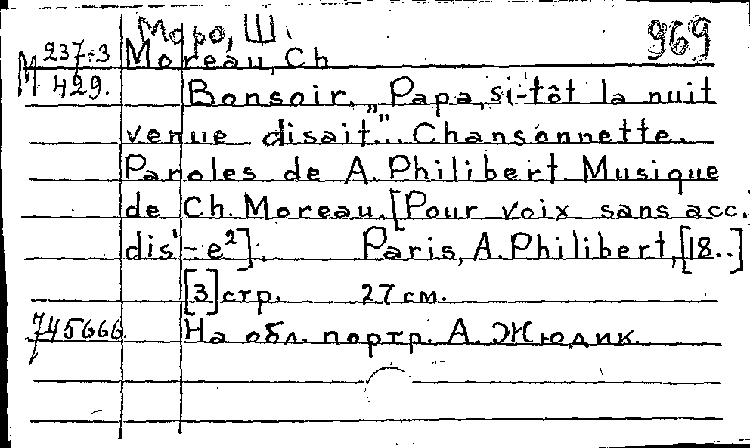 Моро, Ш.
969
М 237-3
429.
Moreau, Ch
Bonsoir. „Papa, si-tôt la nuit
venue disait"... Chansonnette.
Paroles de A. Philibert Musique
de Ch. Moreau. [Pour voix sans acc.
dis' - e²]. Paris, A. Philibert, [18..]
[3] стр. 27 см.
745666
На обл. портр. А. Жюдик.